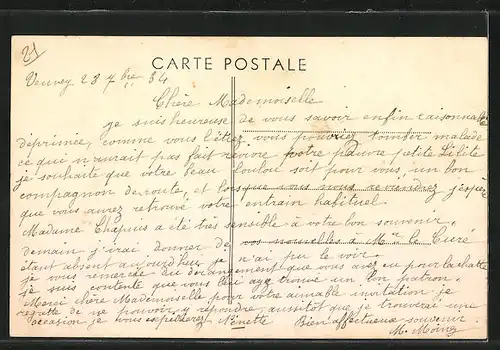 21
CARTE POSTALE
Venvey 23 7bre 34
Chère Mademoiselle
je suis heureuse de vous savoir enfin raisonnable
déprimée, comme vous l'étiez vous pouviez tomber malade
ce qui n'aurait pas fait revivre votre pauvre petite Lilite
je souhaite que votre beau loulou soit pour vous, un bon
compagnon de route, et lorsque vous nous reviendrez j'espère
que vous aurez retrouvé votre entrain habituel.
Madame Chapuis a été très sensible à votre bon souvenir,
demain j'irai donner de vos nouvelles à Mr le Curé
étant absent aujourd'hui je n'ai pu le voir.
je vous remercie du dérangement que vous avez eu pour la chatte
je suis contente que vous lui ayez trouvé un bon patron
Merci chère Mademoiselle pour votre aimable invitation je
regrette de ne pouvoir y répondre, aussitôt que je trouverai une
occasion je vous Nénette Bien affectueux souvenir
M.